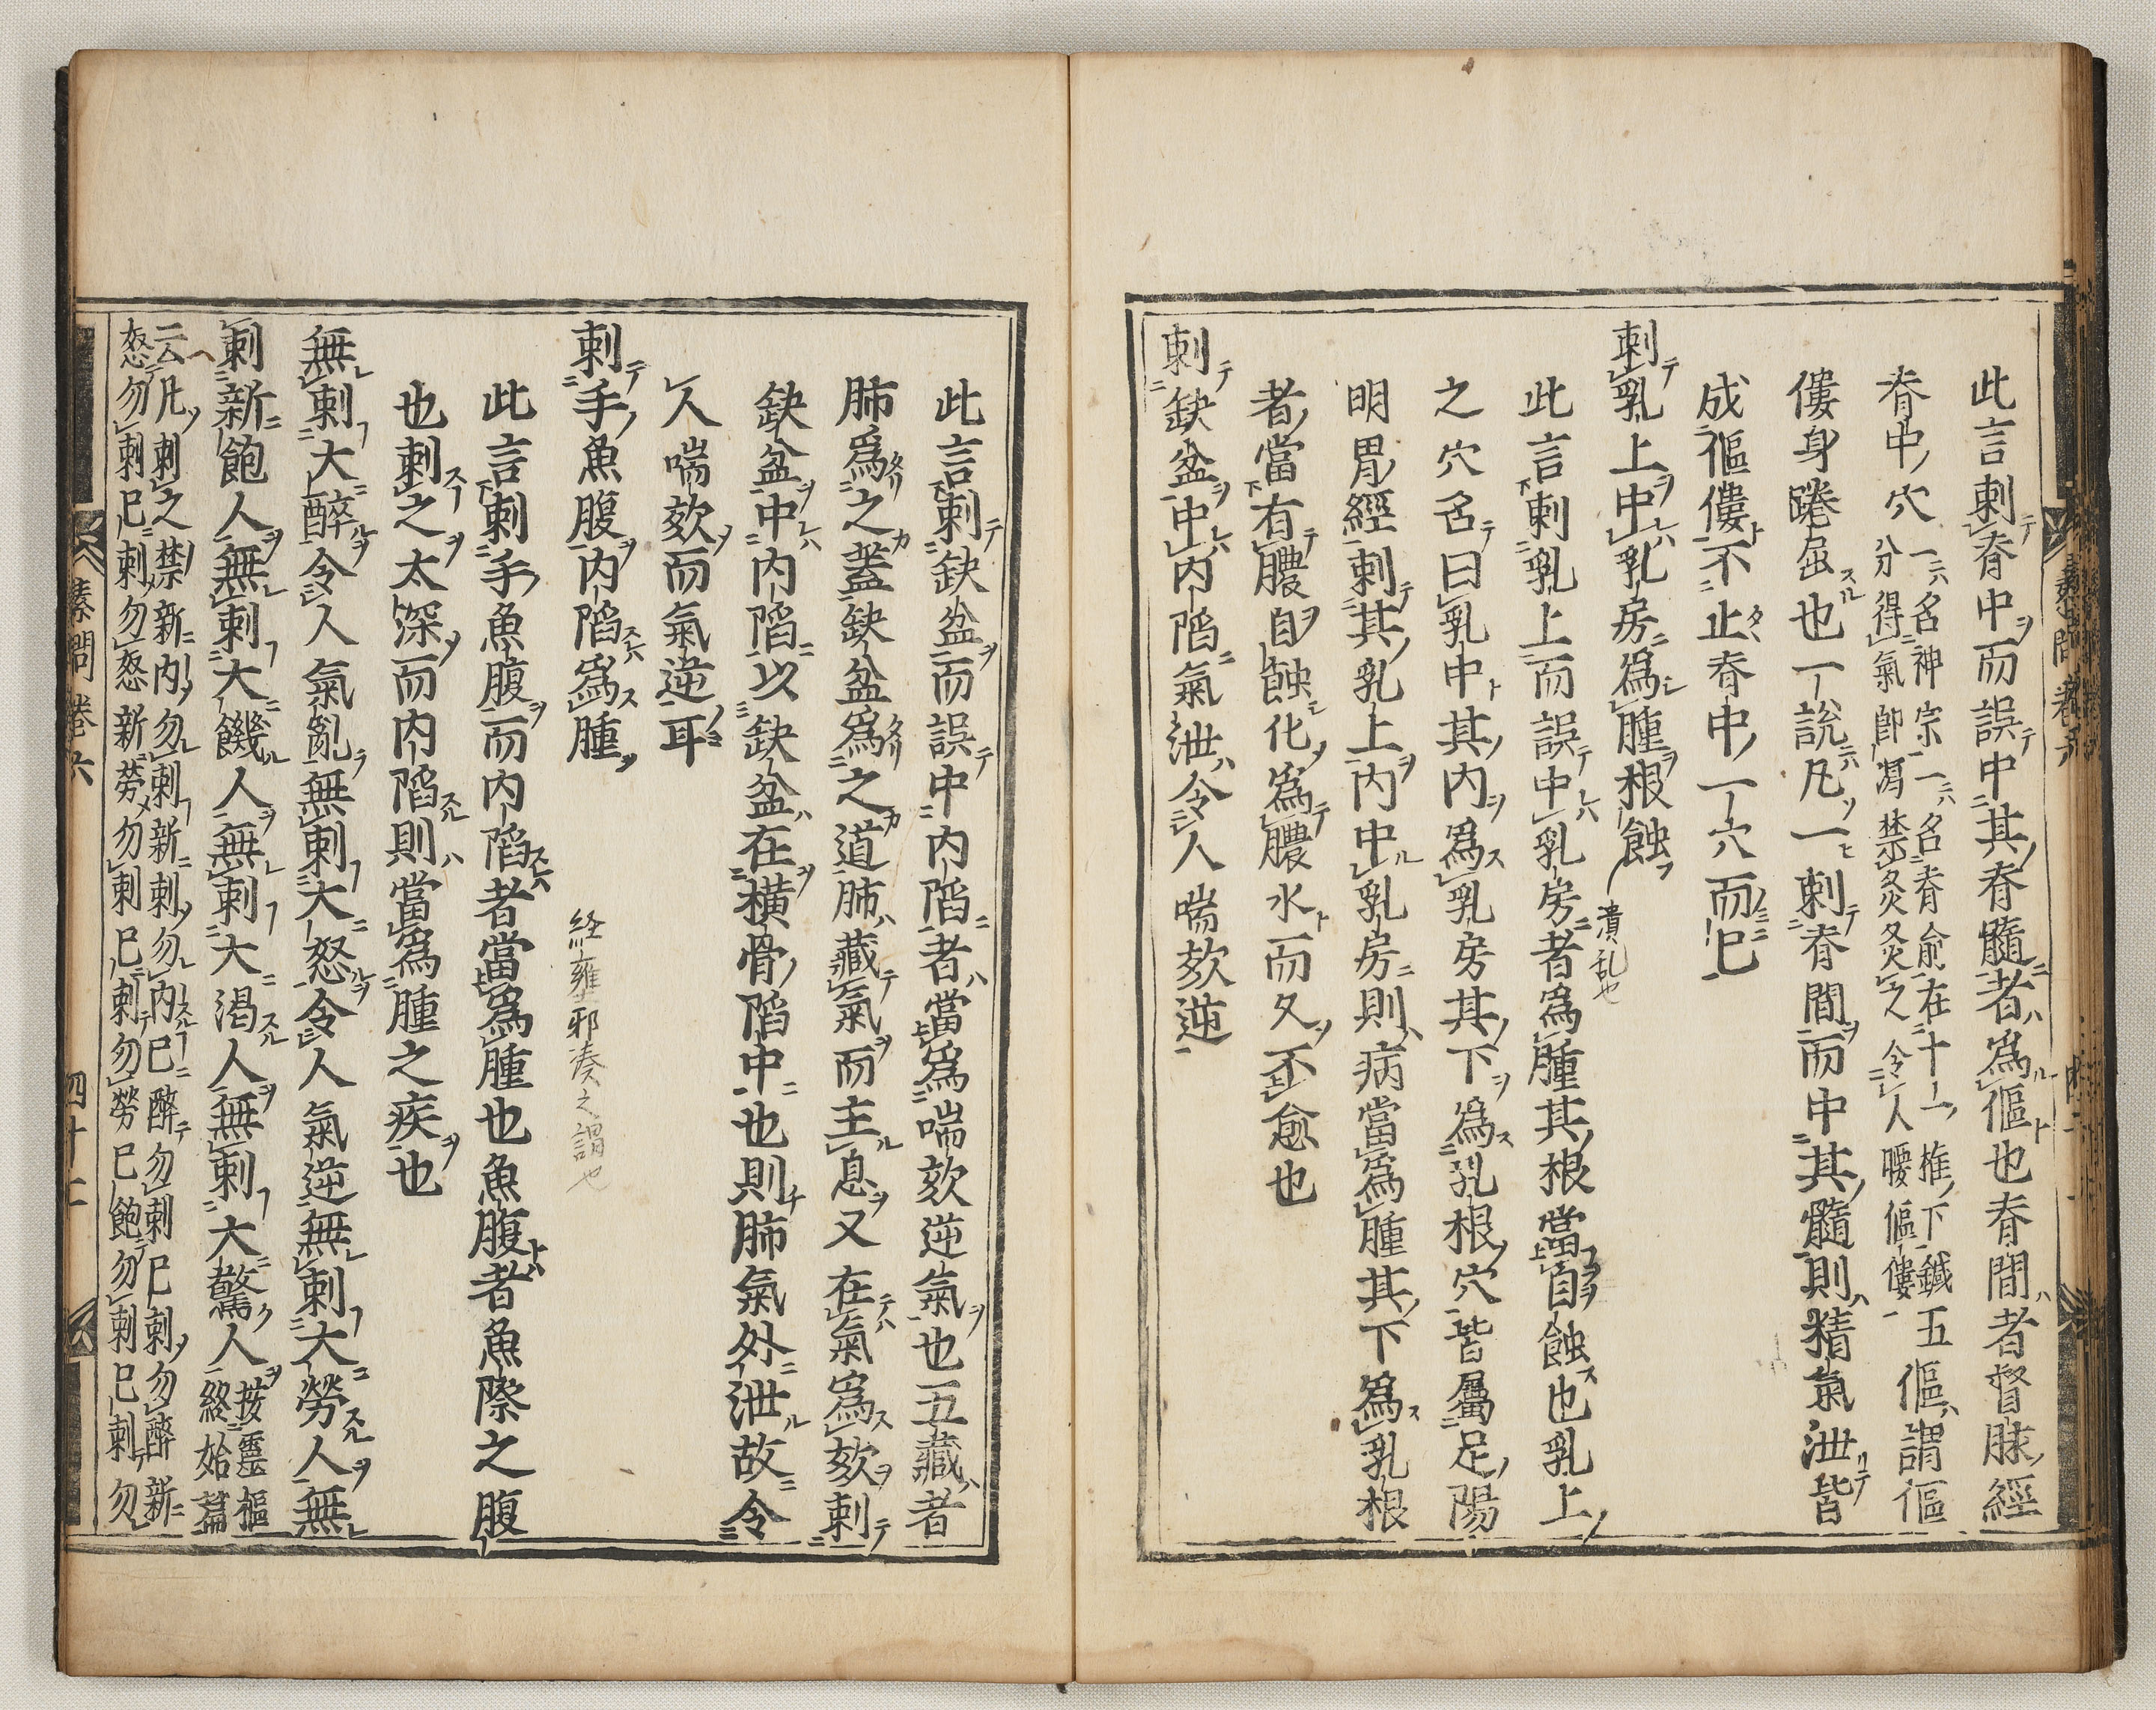 此言刺脊中而誤中其脊髓者爲傴也脊間者督脉經
脊中穴一名神宗一名脊俞在十一椎下鍼五
分得氣即瀉禁灸灸之令人腰傴僂
傴謂傴
僂身踡屈也一說凡一刺脊間而中其髓則精氣泄皆
成傴僂不止脊中一穴而已
刺乳上中乳房爲腫根蝕
潰乱也
此言刺乳上而誤中乳房者爲腫其根當自蝕也乳上
之穴名曰乳中其內爲乳房其下爲乳根穴皆屬足陽
明胃經刺其乳上內中乳房則病當爲腫其下爲乳根
者當有膿自蝕化爲膿水而久不愈也
刺缺盆中內陷氣泄令人喘欬逆
此言刺缺盆而誤中內陷者當爲喘欬逆氣也五藏者
肺爲之蓋缺盆爲之道肺藏氣而主息又在氣爲欬刺
缺盆中內陷以缺盆在橫骨陷中也則肺氣外泄故令
人喘欬而氣逆耳
刺手魚腹內陷爲腫
経壅邪湊之謂也
此言刺手魚腹而內陷者當爲腫也魚腹者魚際之腹
也刺之太深而內陷則當爲腫之疾也
無刺大醉令人氣亂無刺大怒令人氣逆無刺大勞人無
刺新飽人無刺大饑人無刺大渴人無刺大驚人按靈樞
終始篇
云凡刺之禁新內勿刺新刺勿內已醉勿刺已刺勿醉新
怒勿刺已刺勿怒新勞勿刺已刺勿勞已飽勿刺已刺勿
素問卷六
四十二